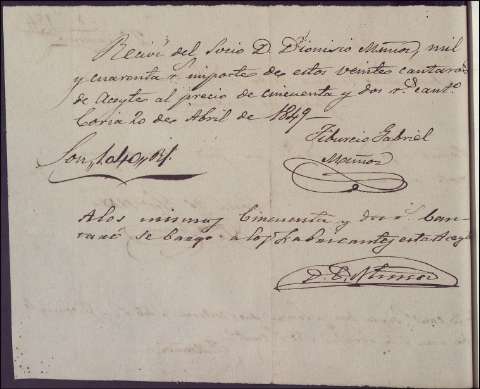 Recivi del Socio D. Dionisio Muñoz, mil
y cuarenta r.s importe de estos veinte cantaros
de Aceyte al precio de cincuenta y dos r.s cant.o
Coria 20 de Abril de 1849
Tiburcio Gabriel
Muñoz
Son 1040 r.s
A los mismos Cincuenta y dos r.s Can-
taro se cargo a los Fabricantes este Aceyte
Muñoz